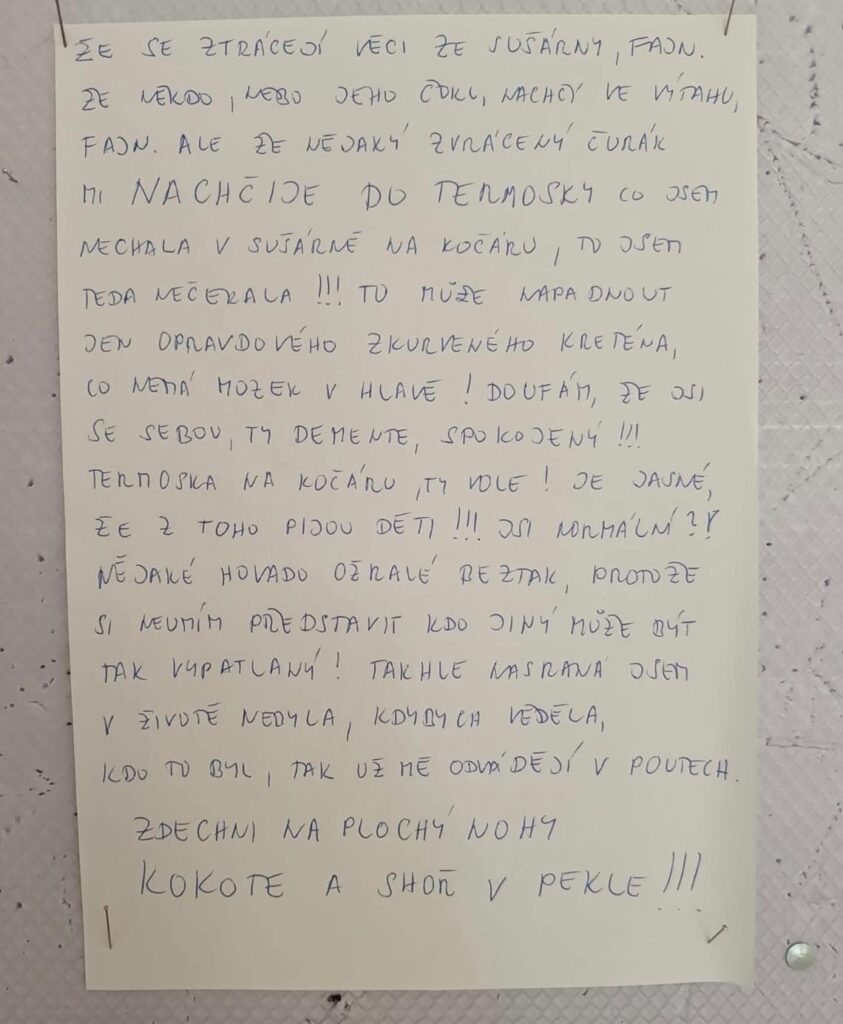 ŽE SE ZTRÁCEJÍ VĚCI ZE SUŠÁRNY, FAJN.
ŽE NĚKDO, NEBO JEHO ČOKL, NACHCÝ VE VÝTAHU,
FAJN. ALE ŽE NĚJAKÝ ZVRÁCENÝ ČURÁK
MI NACHČIJE DO TERMOSKY CO JSEM
NECHALA V SUŠÁRNĚ NA KOČÁRU, TO JSEM
TEDA NEČEKALA !!! TO MŮŽE NAPADNOUT
JEN OPRAVDOVÉHO ZKURVENÉHO KRETÉNA,
CO NEMÁ MOZEK V HLAVĚ ! DOUFÁM, ŽE JSI
SE SEBOU, TY DEMENTE, SPOKOJENÝ !!!
TERMOSKA NA KOČÁRU, TY VOLE ! JE JASNÉ,
ŽE Z TOHO PIJOU DĚTI !!! JSI NORMÁLNÍ ?!
NĚJAKÉ HOVADO OŽRALÉ BEZTAK, PROTOŽE
SI NEUMÍM PŘEDSTAVIT KDO JINÝ MŮŽE BÝT
TAK VYPATLANÝ ! TAKHLE NASRANÁ JSEM
V ŽIVOTĚ NEBYLA, KDYBYCH VĚDĚLA,
KDO TO BYL, TAK UŽ MĚ ODVÁDĚJÍ V POUTECH.
ZDECHNI NA PLOCHÝ NOHY
KOKOTE A SHOŘ V PEKLE !!!